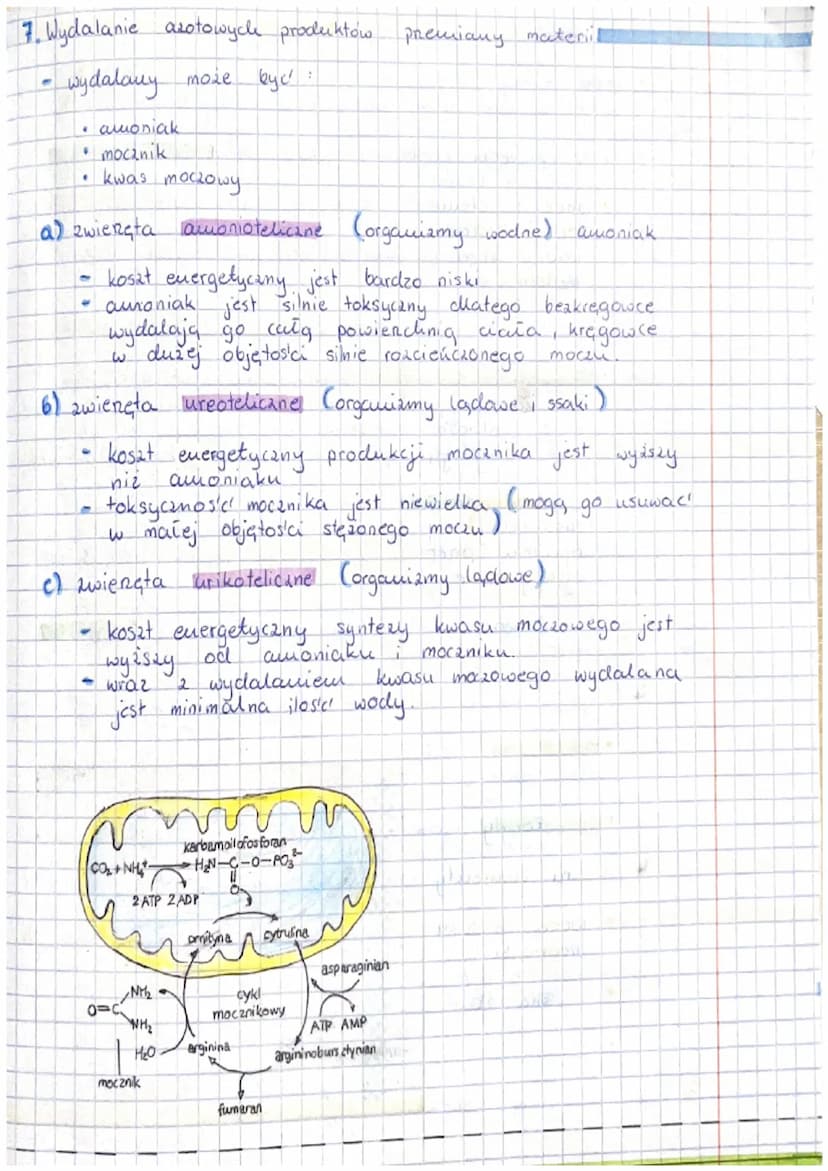 7. Wydalanie azotowych produktów przemiany materii
- wydalany może być :
• amoniak
• mocznik
• kwas moczowy
a) zwierzęta amonioteliczne (organizmy wodne) amoniak
- koszt energetyczny jest bardzo niski
- amoniak jest silnie toksyczny dlatego bezkręgowce
wydalają go całą powierzchnią ciała, kręgowce
w dużej objętości silnie rozcieńczonego moczu.
b) zwierzęta ureoteliczne (organizmy lądowe i ssaki)
- koszt energetyczny produkcji mocznika jest wyższy
niż amoniaku
- toksyczność mocznika jest niewielka (mogą go usuwać
w małej objętości stężonego moczu)
c) zwierzęta urikoteliczne (organizmy lądowe)
- koszt energetyczny syntezy kwasu moczowego jest
wyższy od amoniaku i moczniku.
- wraz z wydalaniem kwasu moczowego wydalana
jest minimalna ilość wody.
karbamoilofosforan
CO₂ + NH₄⁺ → H₂N-C-O-PO₃²⁻
O
2 ATP 2 ADP
ornityna cytrulina
asparaginian
NH₂
O=C
NH₂
cykl
mocznikowy
ATP AMP
H₂O
arginina
argininobursztynian
mocznik
fumaran